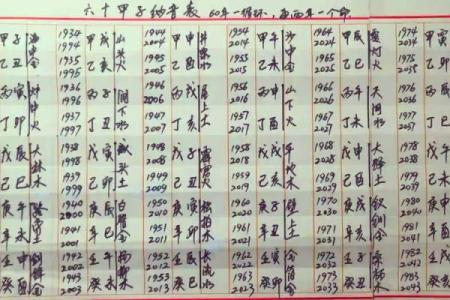 六十甲子纳音表 60年一循环,每两年一个命
甲子 海中金 1934 1994 甲戌 山头火 1944 2004 甲申 井泉水 1954 2014 甲午 沙中金 1964 2024 甲辰 覆灯火 1974 2034 甲寅
乙丑 1935 1995 乙亥 1945 2005 乙酉 1955 2015 乙未 1965 2025 乙巳 1975 2035 乙卯
丙寅 炉中火 1936 1996 丙子 涧下水 1946 2006 丙戌 屋上土 1956 2016 丙申 山下火 1966 2026 丙午 天河水 1976 2036 丙辰
丁卯 1937 1997 丁丑 1947 2007 丁亥 1957 2017 丁酉 1967 2027 丁未 1977 2037 丁巳
戊辰 大林木 1938 1998 戊寅 城头土 1948 2008 戊子 霹雳火 1958 2018 戊戌 平地木 1968 2028 戊申 大驿土 1978 2038 戊午
己巳 1939 1999 己卯 1949 2009 己丑 1959 2019 己亥 1969 2029 己酉 1979 2039 己未
庚午 路旁土 1940 2000 庚辰 白蜡金 1950 2010 庚寅 松柏木 1960 2020 庚子 壁上土 1970 2030 庚戌 钗钏金 1980 2040 庚申
辛未 1941 2001 辛巳 1951 2011 辛卯 1961 2021 辛丑 1971 2031 辛亥 1981 2041 辛酉
壬申 剑锋金 1942 2002 壬午 杨柳木 1952 2012 壬辰 长流水 1962 2022 壬寅 金箔金 1972 2032 壬子 桑柘木 1982 2042 壬戌
癸酉 1943 2003 癸未 1953 2013 癸巳 1963 2023 癸卯 1973 2033 癸丑 1983 2043 癸亥